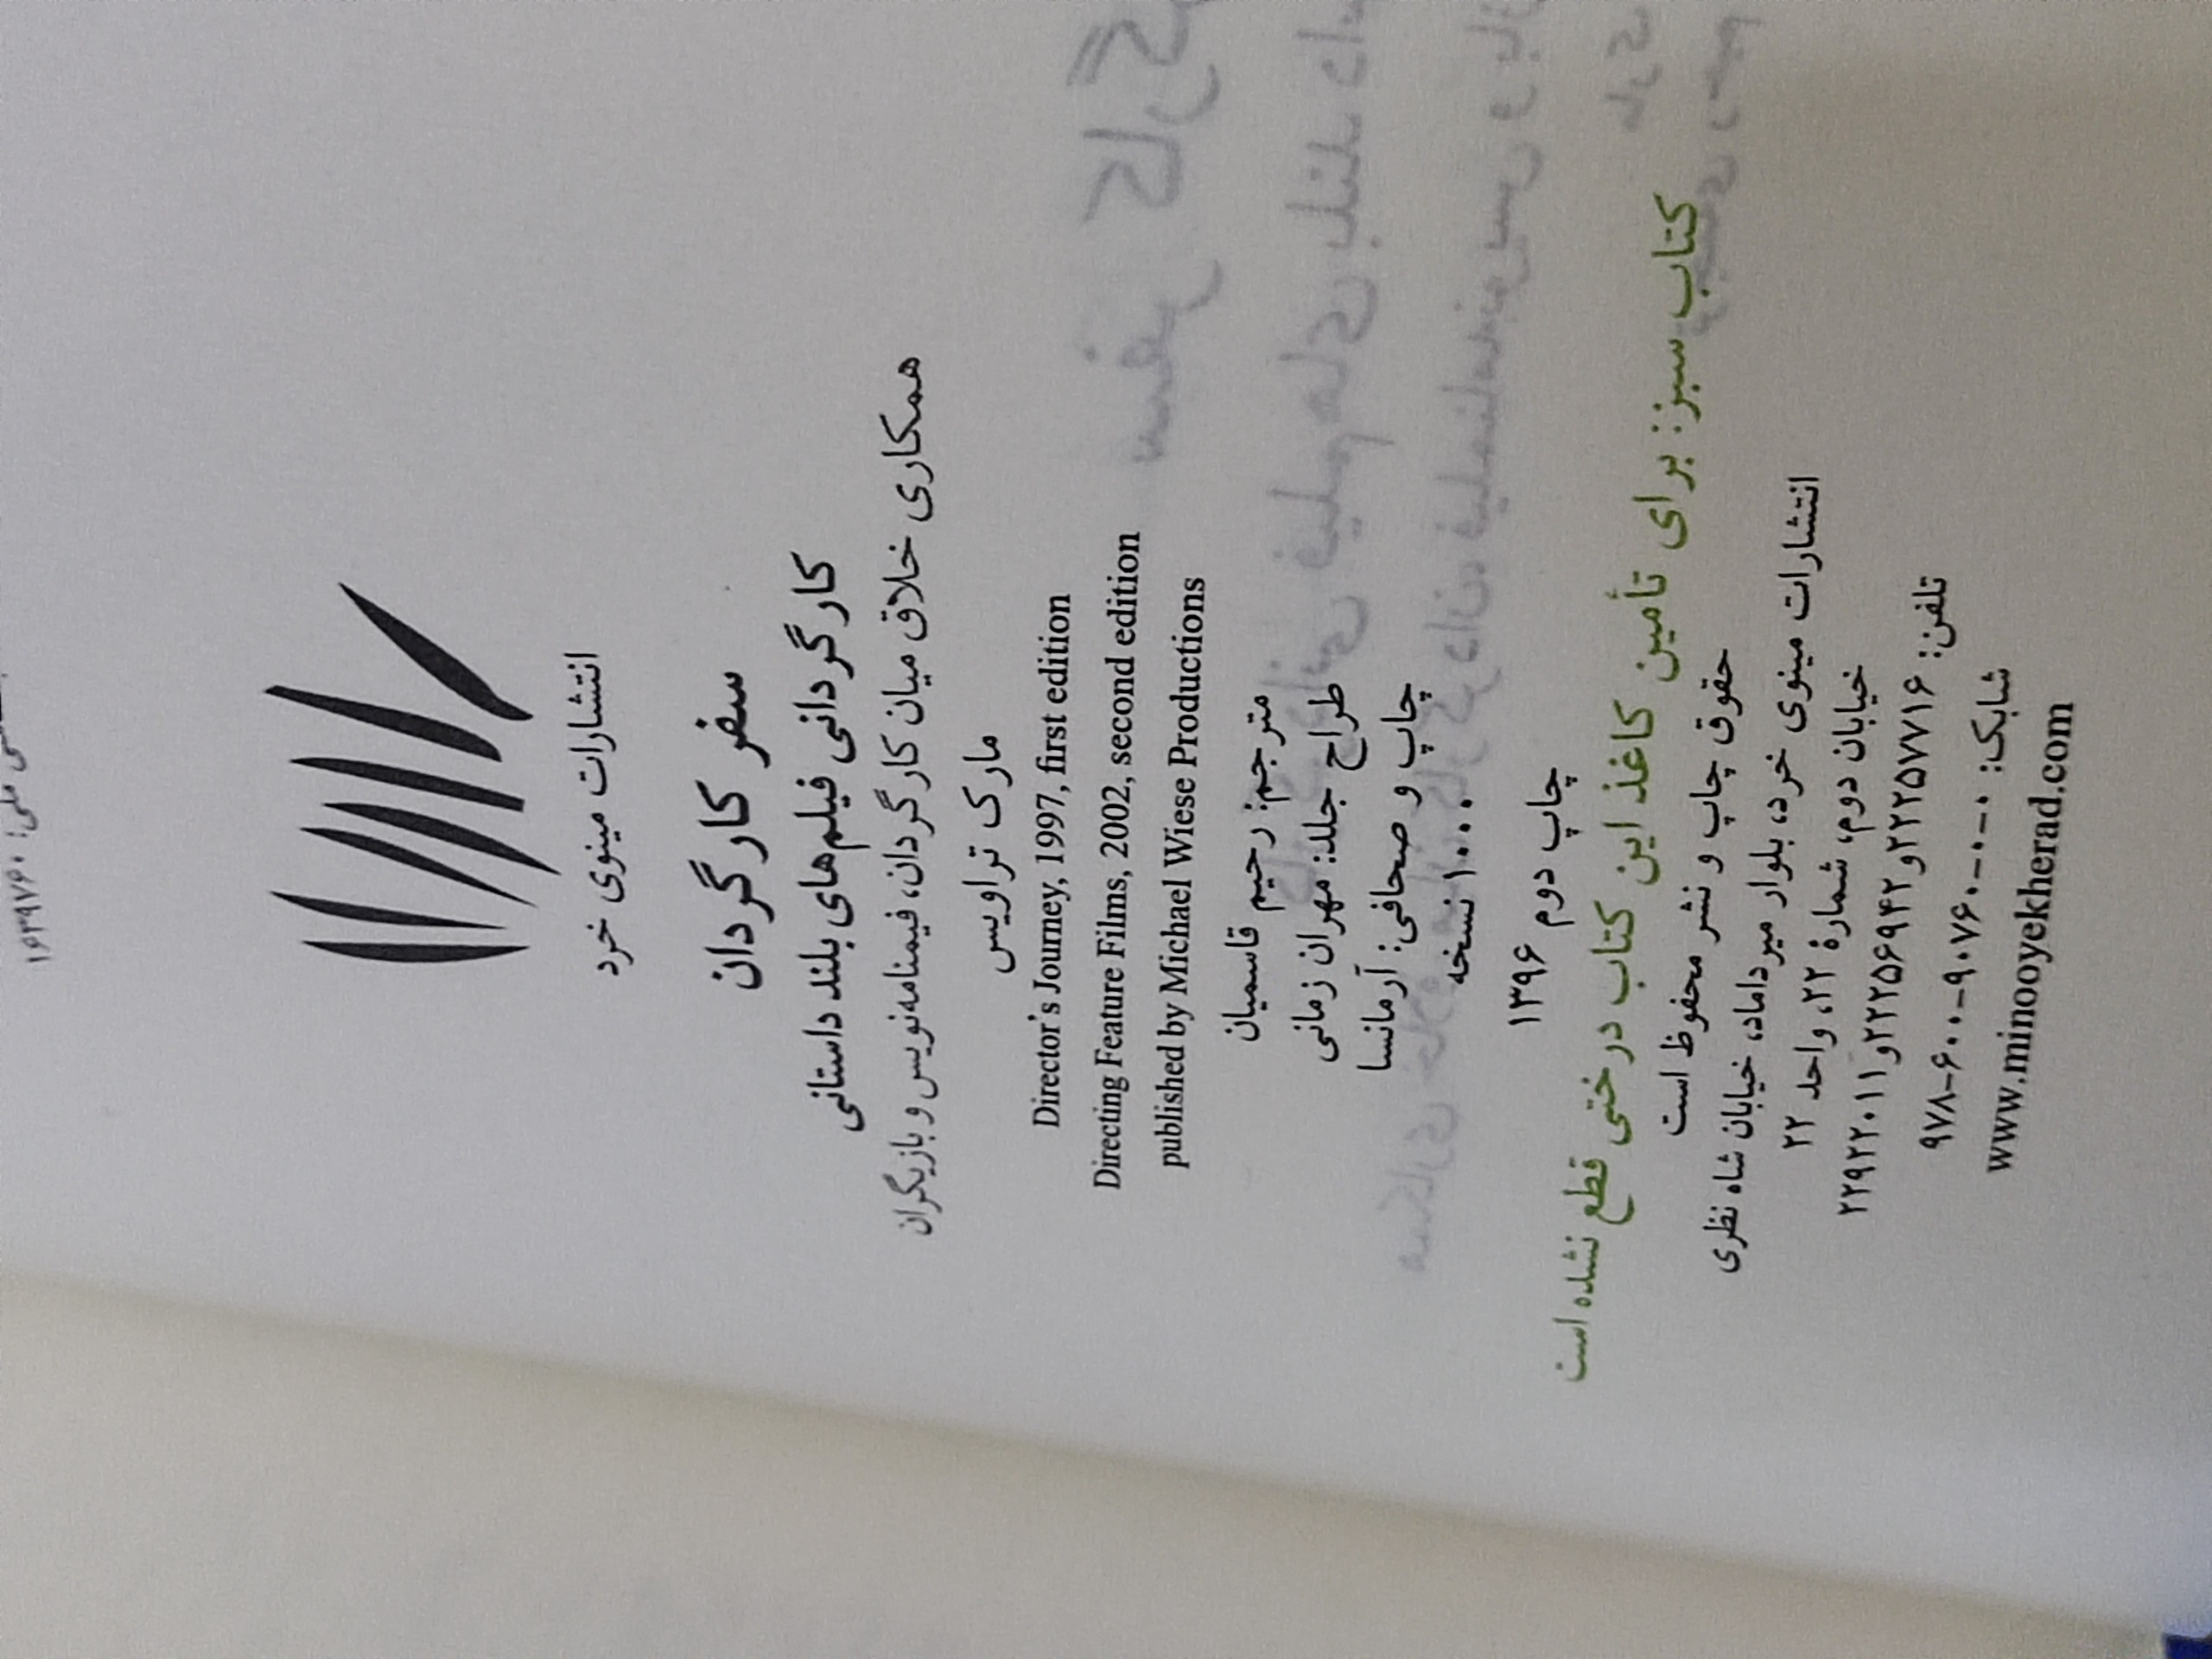 انتشارات مینوی خرد
سفر کارگردان
کارگردانی فیلم‌های بلند داستانی
همکاری خلاق میان کارگردان، فیمنامه‌نویس و بازیگران
مارک تراویس
Director's Journey, 1997, first edition
Directing Feature Films, 2002, second edition
published by Michael Wiese Productions
مترجم: رحیم قاسمیان
طراح جلد: مهران زمانی
چاپ و صحافی: آرمانسا
۱۰۰۰ نسخه
چاپ دوم ۱۳۹۶
کتاب سبز: برای تأمین کاغذ این کتاب درختی قطع نشده است
حقوق چاپ و نشر محفوظ است
انتشارات مینوی خرد، بلوار میرداماد، خیابان شاه نظری
خیابان دوم، شمارهٔ ۲۲، واحد ۲۲
تلفن: ۲۲۲۵۷۷۱۶ و ۲۲۲۵۶۹۴۲ و ۲۲۹۲۲۰۱۱
شابک: ۹۷۸-۶۰۰-۹۰۷۶۰-۰-۰
www.minooyekherad.com